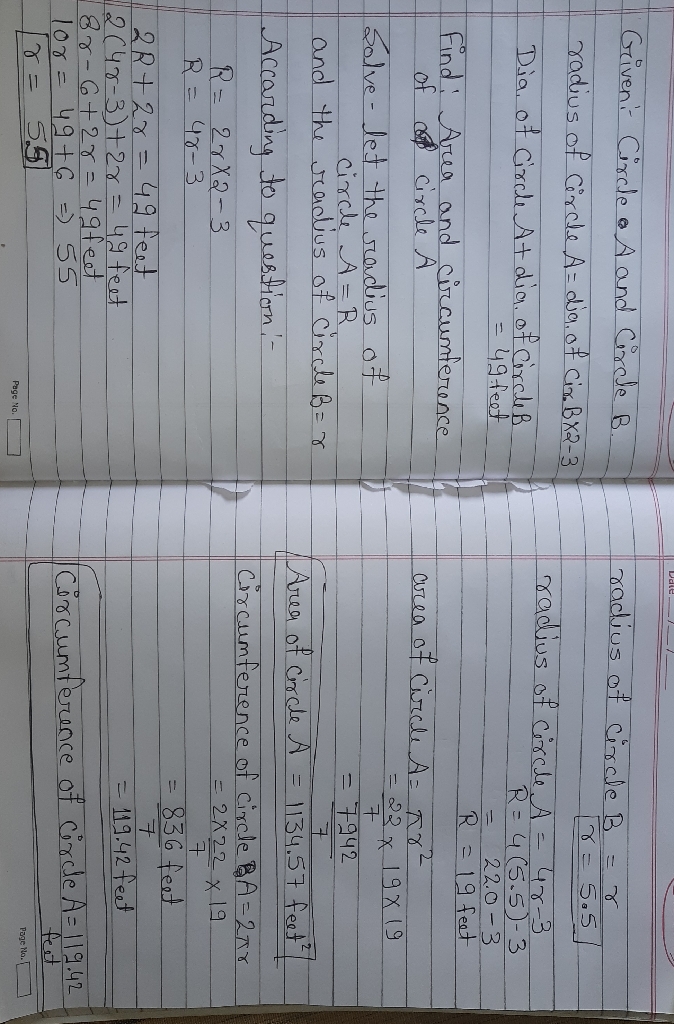 Given:- Circle A and Circle B.
radius of Circle A = dia. of Cir. B X 2 - 3
Dia. of Circle A + dia. of Circle B
= 49 feet
Find: Area and circumference
of circle A
Solve - let the radius of
circle A = R
and the radius of Circle B = r
According to question:-
R = 2r X 2 - 3
R = 4r - 3
2R + 2r = 49 feet
2(4r-3) + 2r = 49 feet
8r - 6 + 2r = 49 feet
10r = 49 + 6 => 55
r = 5.5
Page No.
Date
radius of circle B = r
r = 5.5
radius of circle A = 4r - 3
R = 4(5.5) - 3
= 22.0 - 3
R = 19 feet
area of Circle A = πr²
= 22/7 x 19 x 19
= 7942/7
Area of Circle A = 1134.57 feet²
Circumference of Circle A = 2πr
= 2 x 22/7 x 19
= 836/7 feet
= 119.42 feet
Circumference of Circle A = 119.42
feet
Page No.